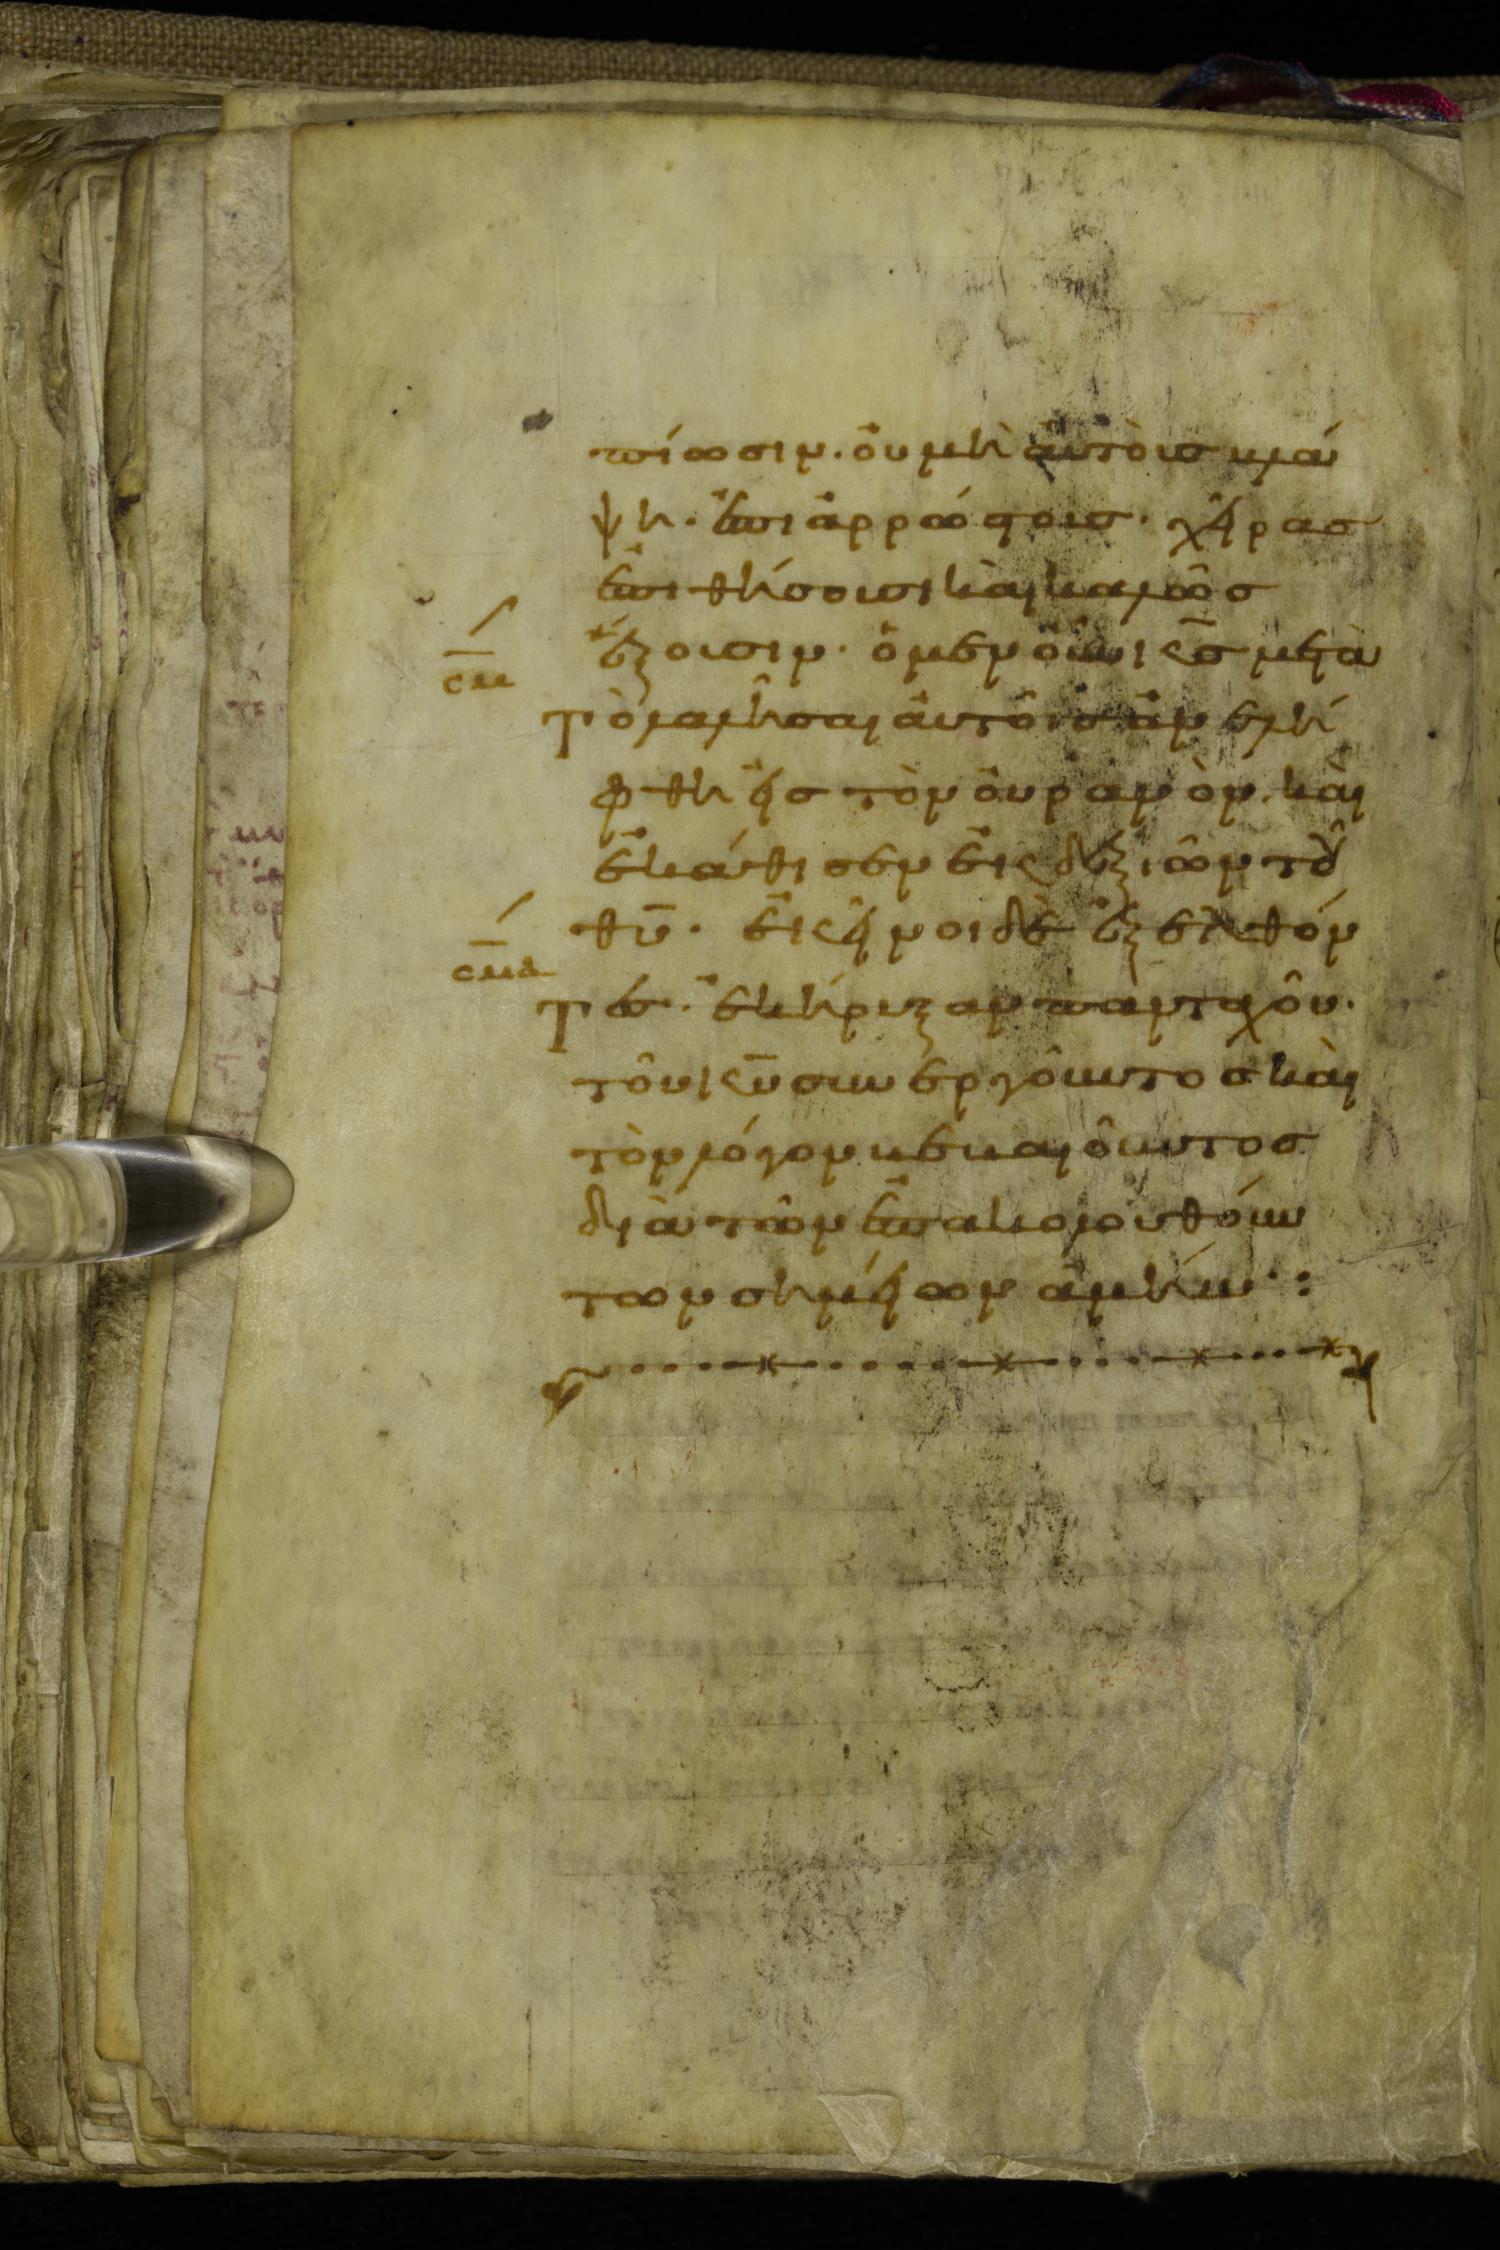 πίωσιν. ὀυ μὴ ἀυτὸις βλά
ψη. ἐπι ἀρρώστοις. χεῖρας
ἐπιθήσοισι καὶ καλῶς
ἕξοισιν. ὁ μεν ὀῦν ις̅ μετὰ
σμ̅
τὸ λαλῆσαι ἀυτοῖς ἀνελή
φθη ἐις τὸν ὀυρανὸν. καὶ
ἐκάθισεν ἐις δεξιῶν τοῦ
θυ̅. ἐκεῖνοι δὲ ἐξελθόν
σμ̅α
τες. ἐκήρυξαν πανταχοῦ.
τοῦ ιυ̅ συνεργοῦντος καὶ
τὸν λόγον βεβαιοῦντος
διὰ τῶν ἐπακολουθούν
των σημείων ἀμήν·: